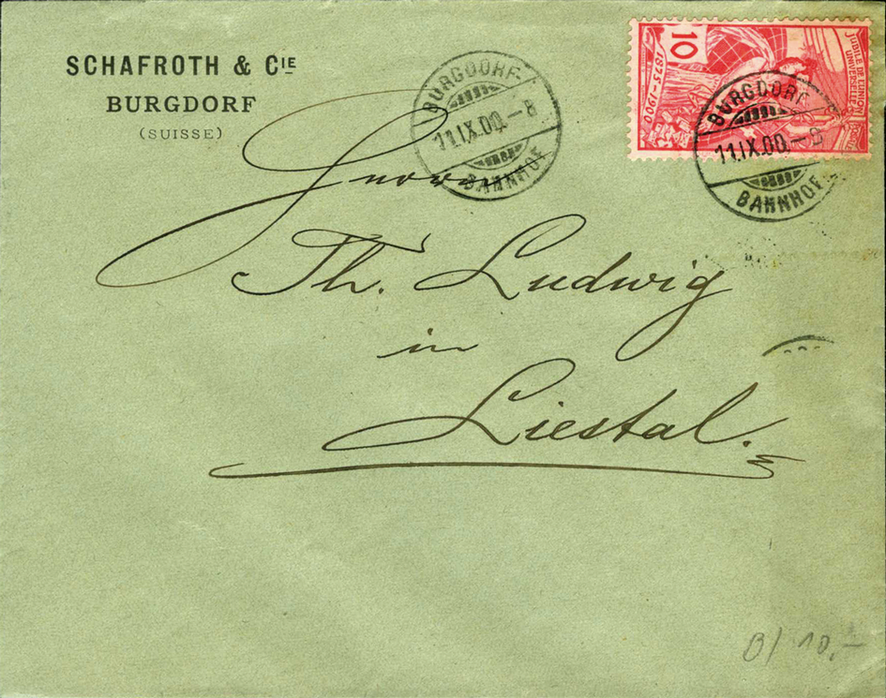 SCHAFROTH & CIE
BURGDORF
(SUISSE)
BURGDORF
11.IX.00.-8
BAHNHOF
10
1875-1900
JUBILÉ DE L'UNION
UNIVERSELLE
BURGDORF
11.IX.00.-8
BAHNHOF
Th. Ludwig
in
Liestal.
10.-